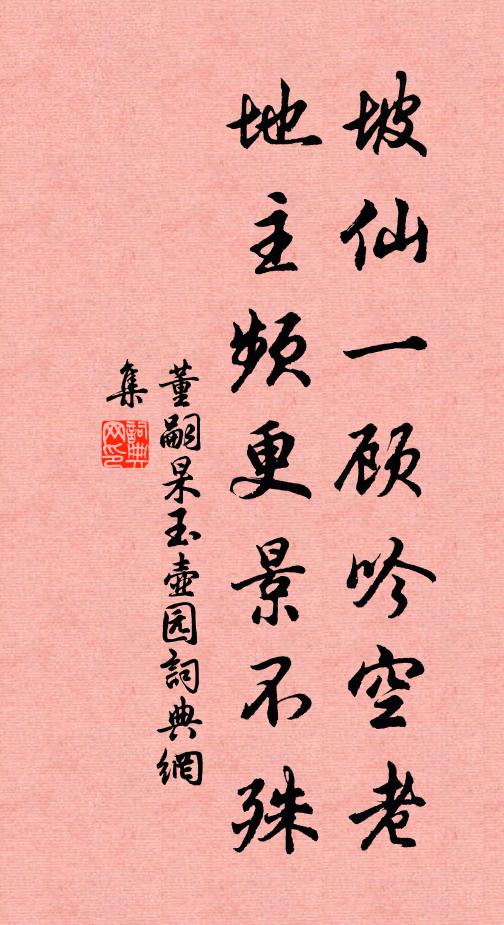 坡仙一顾吟空老
地主频更景不殊
董嗣杲玉壶园詞典網
集
詞典网印